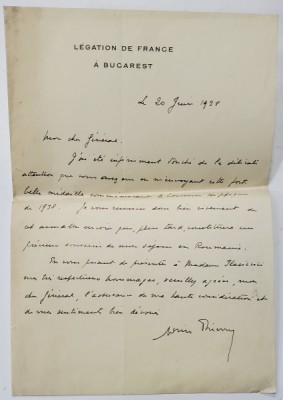 LÉGATION DE FRANCE
À BUCAREST
Le 20 Juin 19
Mon cher Général,
J'ai été infiniment touché de la délicate
attention que vous avez eue en m'envoyant cette fort
belle médaille
de 1938. Je vous remercie bien vivement de
cet aimable envoi qui, plus tard, constituera un
précieux souvenir de mon séjour en Roumanie.
En vous priant de présenter à Madame
mes très respectueux hommages, veuillez agréer, mon
cher Général, l'assurance de ma haute considération et
de mes sentiments bien dévoués